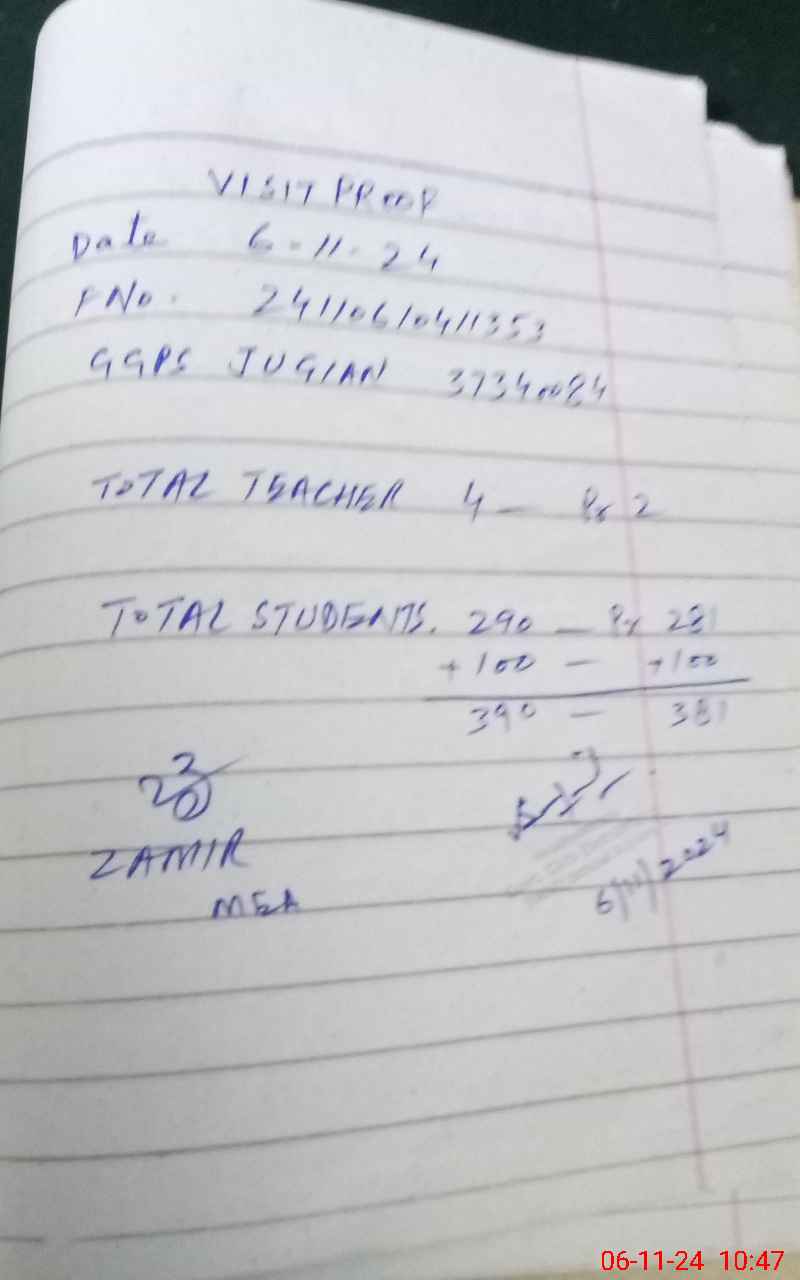 VISIT PROOF
Date 6-11-24
FNo. 24110610411353
GGPS JUGIAN 37340084
TOTAL TEACHER 4 — Pr 2
TOTAL STUDENTS. 290 — Pr 281
+100 — +100
390 — 381
ZAMIR
MEA
6/11/2024
06-11-24 10:47